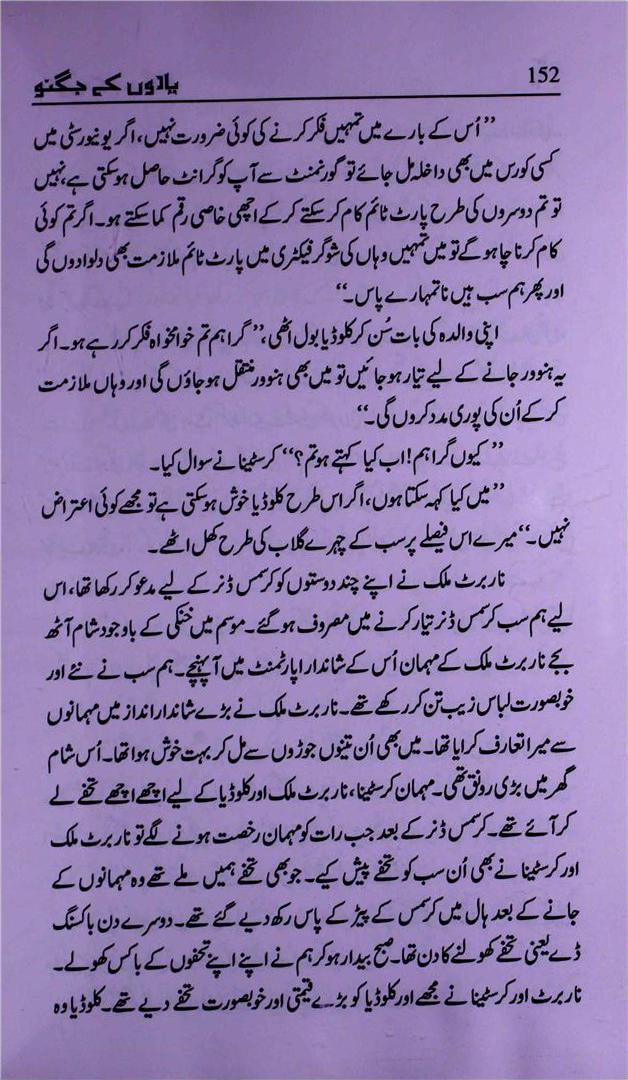 152
یادوں کے جگنو
’’اُس کے بارے میں تمہیں فکر کرنے کی کوئی ضرورت نہیں، اگر یونیورسٹی میں
کسی کورس میں بھی داخلہ مل جائے تو گورنمنٹ سے آپ کو گرانٹ حاصل ہو سکتی ہے، نہیں
تو تم دوسروں کی طرح پارٹ ٹائم کام کر سکتے کر کے اچھی خاصی رقم کما سکتے ہو۔ اگر تم کوئی
کام کرنا چاہو گے تو میں تمہیں وہاں کی شوگر فیکٹری میں پارٹ ٹائم ملازمت بھی دلوا دوں گی
اور پھر ہم سب ہیں نا تمہارے پاس۔‘‘
اپنی والدہ کی بات سُن کر کلوڈیا بول اٹھی، ’’گراہم تم خوامخواہ فکر کر رہے ہو۔ اگر
یہ ہنوور جانے کے لیے تیار ہو جائیں تو میں بھی ہنوور منتقل ہو جاؤں گی اور وہاں ملازمت
کر کے اُن کی پوری مدد کروں گی۔‘‘
’’کیوں گراہم! اب کیا کہتے ہو تم؟‘‘ کرسٹینا نے سوال کیا۔
’’میں کیا کہہ سکتا ہوں، اگر اس طرح کلوڈیا خوش ہو سکتی ہے تو مجھے کوئی اعتراض
نہیں۔‘‘ میرے اس فیصلے پر سب کے چہرے گلاب کی طرح کھل اٹھے۔
ناربرٹ ملک نے اپنے چند دوستوں کو کرسمس ڈنر کے لیے مدعو کر رکھا تھا، اس
لیے ہم سب کرسمس ڈنر تیار کرنے میں مصروف ہو گئے۔ موسم میں خنکی کے باوجود شام آٹھ
بجے ناربرٹ ملک کے مہمان اُس کے شاندار اپارٹمنٹ میں آ پہنچے۔ ہم سب نے نئے اور
خوبصورت لباس زیب تن کر رکھے تھے۔ ناربرٹ ملک نے بڑے شاندار انداز میں مہمانوں
سے میرا تعارف کرایا تھا۔ میں بھی اُن تینوں جوڑوں سے مل کر بہت خوش ہوا تھا۔ اُس شام
گھر میں بڑی رونق تھی۔ مہمان کرسٹینا، ناربرٹ ملک اور کلوڈیا کے لیے اچھے اچھے تحفے لے
کر آئے تھے۔ کرسمس ڈنر کے بعد جب رات کو مہمان رخصت ہونے لگے تو ناربرٹ ملک
اور کرسٹینا نے بھی اُن سب کو تحفے پیش کیے۔ جو بھی تحفے ہمیں ملے تھے وہ مہمانوں کے
جانے کے بعد ہال میں کرسمس کے پیڑ کے پاس رکھ دیے گئے تھے۔ دوسرے دن باکسنگ
ڈے یعنی تحفے کھولنے کا دن تھا۔ صبح بیدار ہو کر ہم نے اپنے اپنے تحفوں کے باکس کھولے۔
ناربرٹ اور کرسٹینا نے مجھے اور کلوڈیا کو بڑے قیمتی اور خوبصورت تحفے دیے تھے۔ کلوڈیا وہ